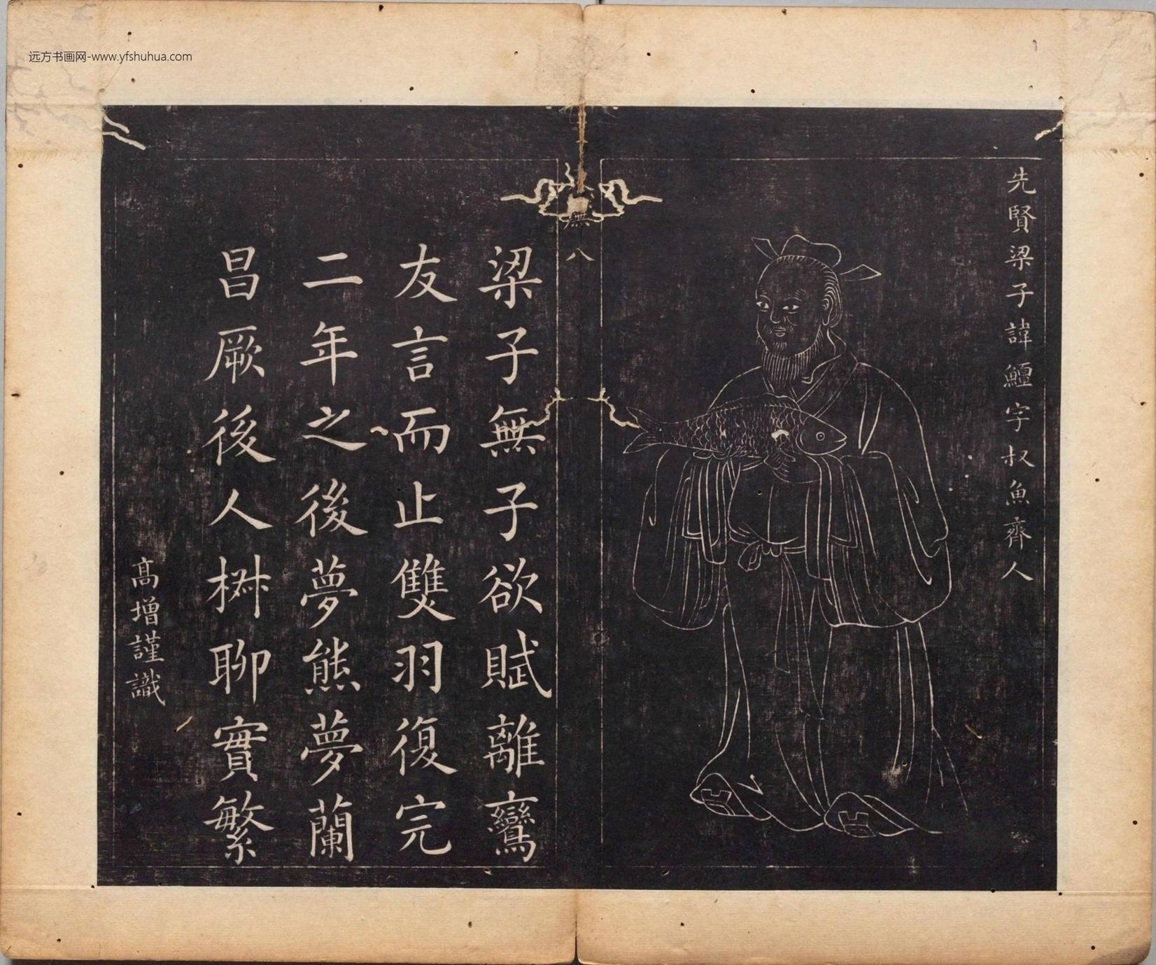 远方书画网-www.yfshuhua.com
先賢梁子諱鱣字叔魚齊人
八
梁子無子欲賦離鸞
友言而止雙羽復完
二年之後夢熊夢蘭
昌厥後人椒聊實繁
高增謹識